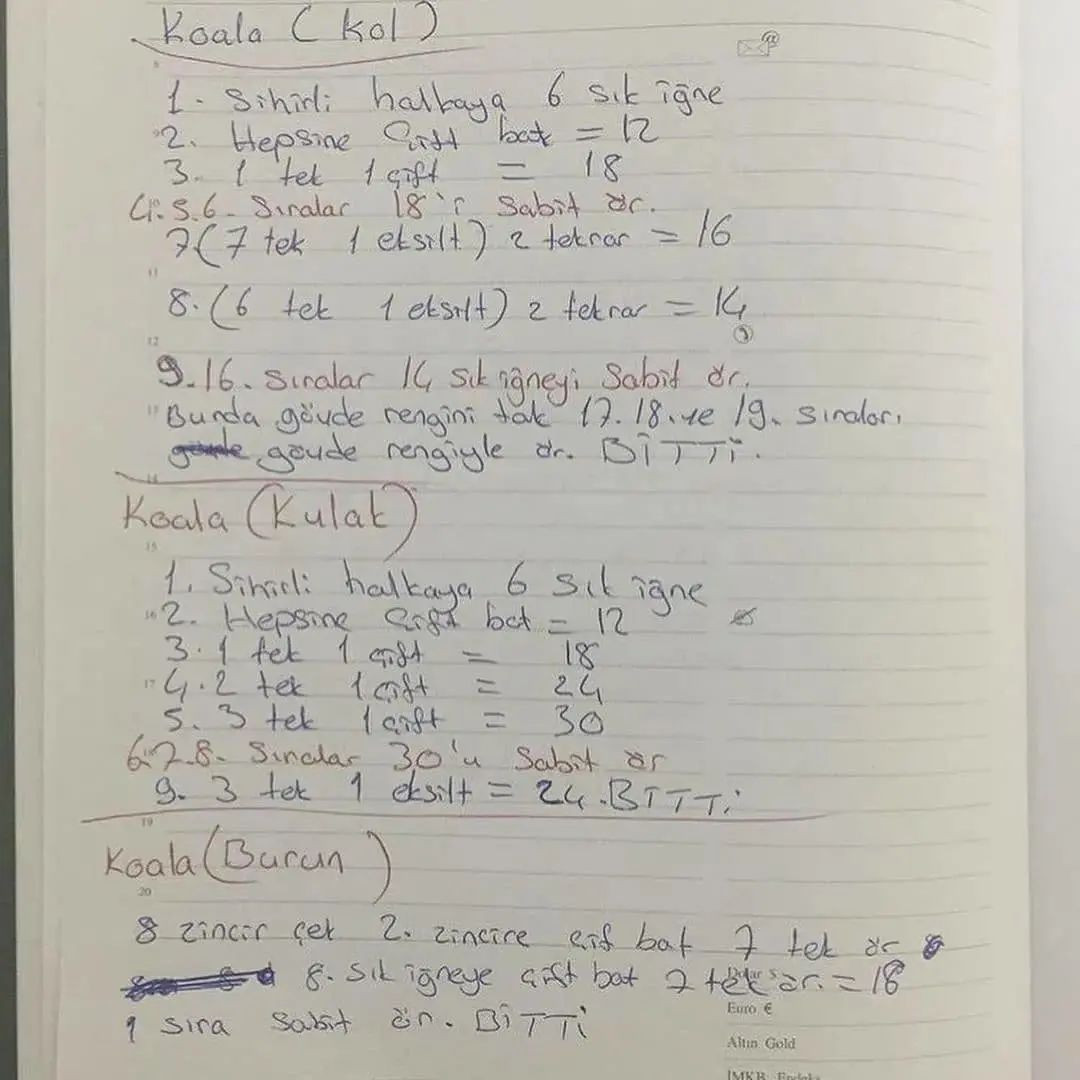 Koala (Kol)
1. Sihirli halkaya 6 sık iğne
2. Hepsine Çift bat = 12
3. 1 tek 1 çift = 18
4.5.6. Sıralar 18'i Sabit ör.
7 (7 tek 1 eksilt) 2 tekrar = 16
11
8. (6 tek 1 eksilt) 2 tekrar = 14
12
9.16. Sıralar 14 sık iğneyi Sabit ör.
Bunda gövde rengini tak 17.18.ve 19. sıraları
gövde rengiyle ör. BİTTİ.
14
Koala (Kulak)
15
1. Sihirli halkaya 6 sık iğne
16 2. Hepsine Çift bat = 12
3. 1 tek 1 çift = 18
17 4. 2 tek 1 çift = 24
5. 3 tek 1 çift = 30
6.7.8. Sıralar 30'u Sabit ör
9. 3 tek 1 eksilt = 24. BİTTİ
19
Koala (Burun)
20
8 zincir çek 2. zincire çif bat 7 tek ör
8. sık iğneye çift bat 7 tek ör. = 18
1 sıra sabit ör. BİTTİ
Euro €
Altın Gold
İMKB Endeks